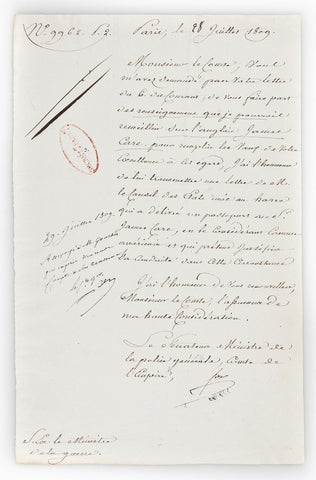 N.º 9962. P. 2.
Paris, le 28 Juillet 1809.
Monsieur le Comte, Vous
m'avez demandé, par votre lettre
du 6 du Courant, de vous faire part
des renseignemens que je pourrais
recueillir sur l'anglais James
Carr. pour remplir les vues de Votre
Excellence à cet égard, J'ai l'honneur
de lui transmettre une lettre de M. le
Consul des États unis au havre
qui a délivré un passeport au S.r
James Carr, en le Considérant Comme
américain et qui prétend Justifier
sa Conduite dans cette Circonstance
J'ai l'honneur de vous renouveller
Monsieur le Comte, l'assurance de
ma haute Considération.
Le Sénateur Ministre de
la police générale, Comte de
l'Empire,
29 Juillet 1809.
S. Ex. le Ministre
de la guerre.